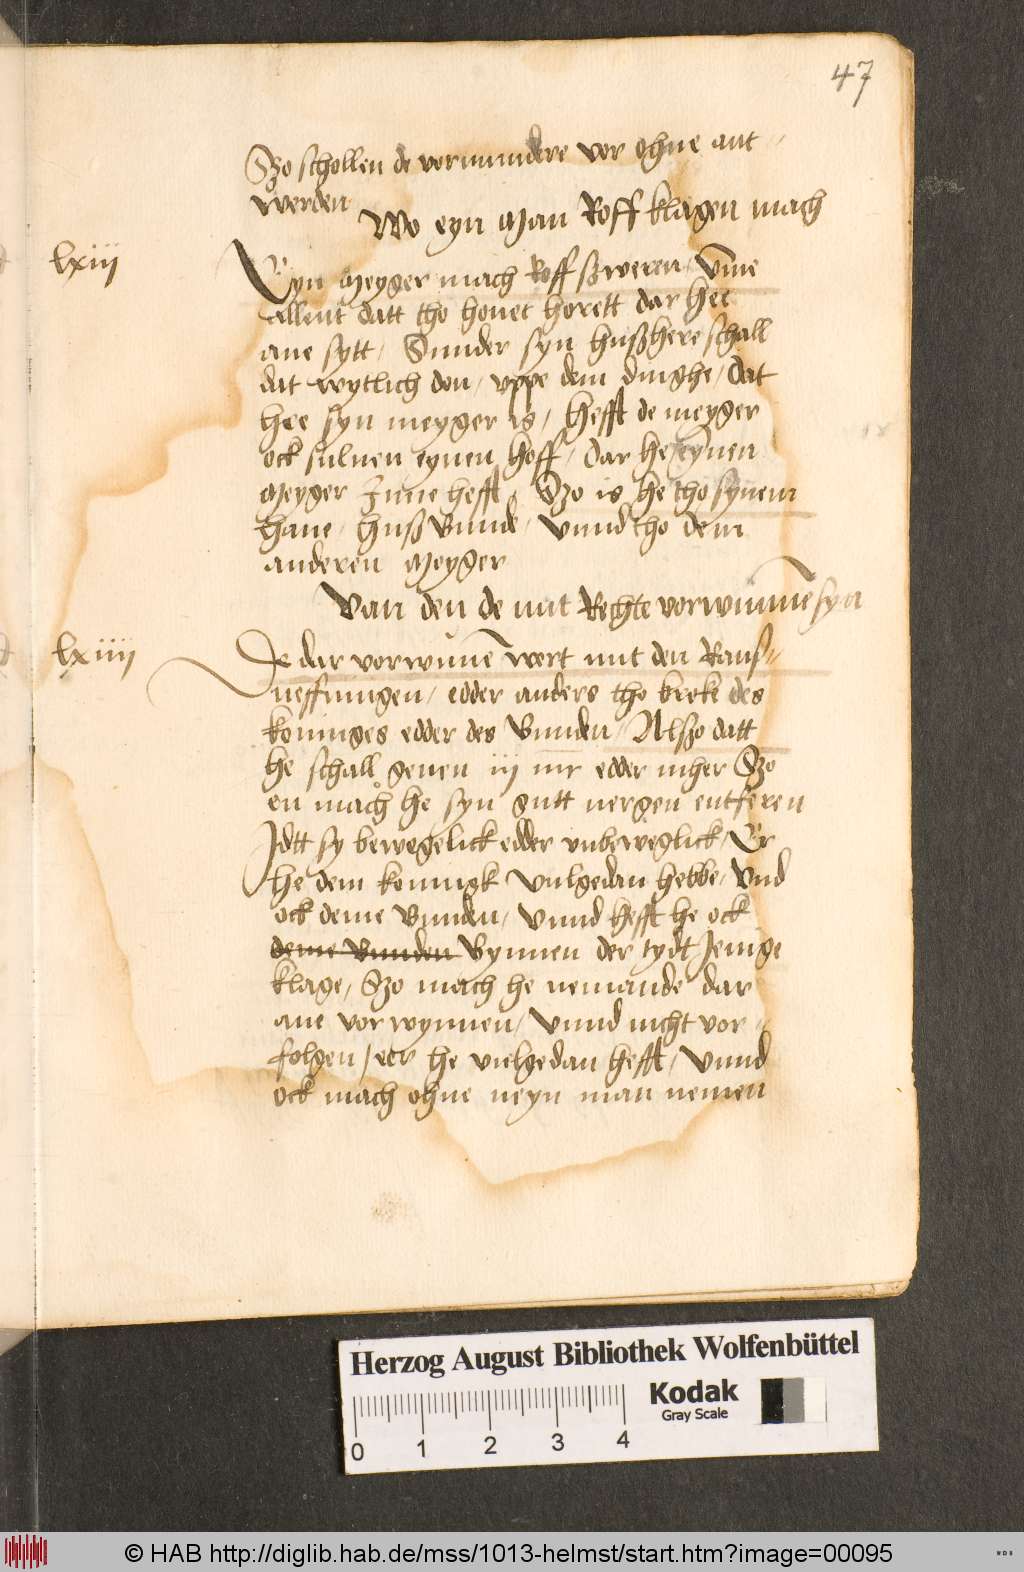 47
Szo schollen de vormundere vor ohne ant
werden
Wo eyn Man Roff klagen mach
lxiii
Eyn Meyger mach Roff szweren, Vme
allent datt tho houet horett dar hee
ane sytt, Sunder syn hußhere schall
dat wytlich don, vppe dem dinghe, dat
hee syn meyger is, hefft de meyger
ock suluen eynen hoff, dar he eynen
Meyger Inne hefft, Szo is he tho synem
hane, huß Bunde, Vnnd tho dem
anderen Meyger
Van den de mit Rechte vorwunne syn
lxiiii
De dar vorwunne wert mit den
neffningen, edder anders tho broke des
koninges edder des Bunden, Alszo datt
he schall geuen iij mr edder mher Szo
en mach he syn gutt nergen entferen
Idtt sy bewegelick edder vnbeweglick, Er
he dem konningk vulgedan hebbe, Vnd
ock deme Bunden, Vnnd hefft he ock
deme Bunden Bynnen der tydt Jenige
klage, Szo mach he nemande dar
ane vorwynnen, Vnnd nicht vor-
folgen, eer he vulgedan hefft, Vnnd
ock mach ohne neyn man nemen
Herzog August Bibliothek Wolfenbüttel
Kodak
Gray Scale
0 1 2 3 4
© HAB http://diglib.hab.de/mss/1013-helmst/start.htm?image=00095